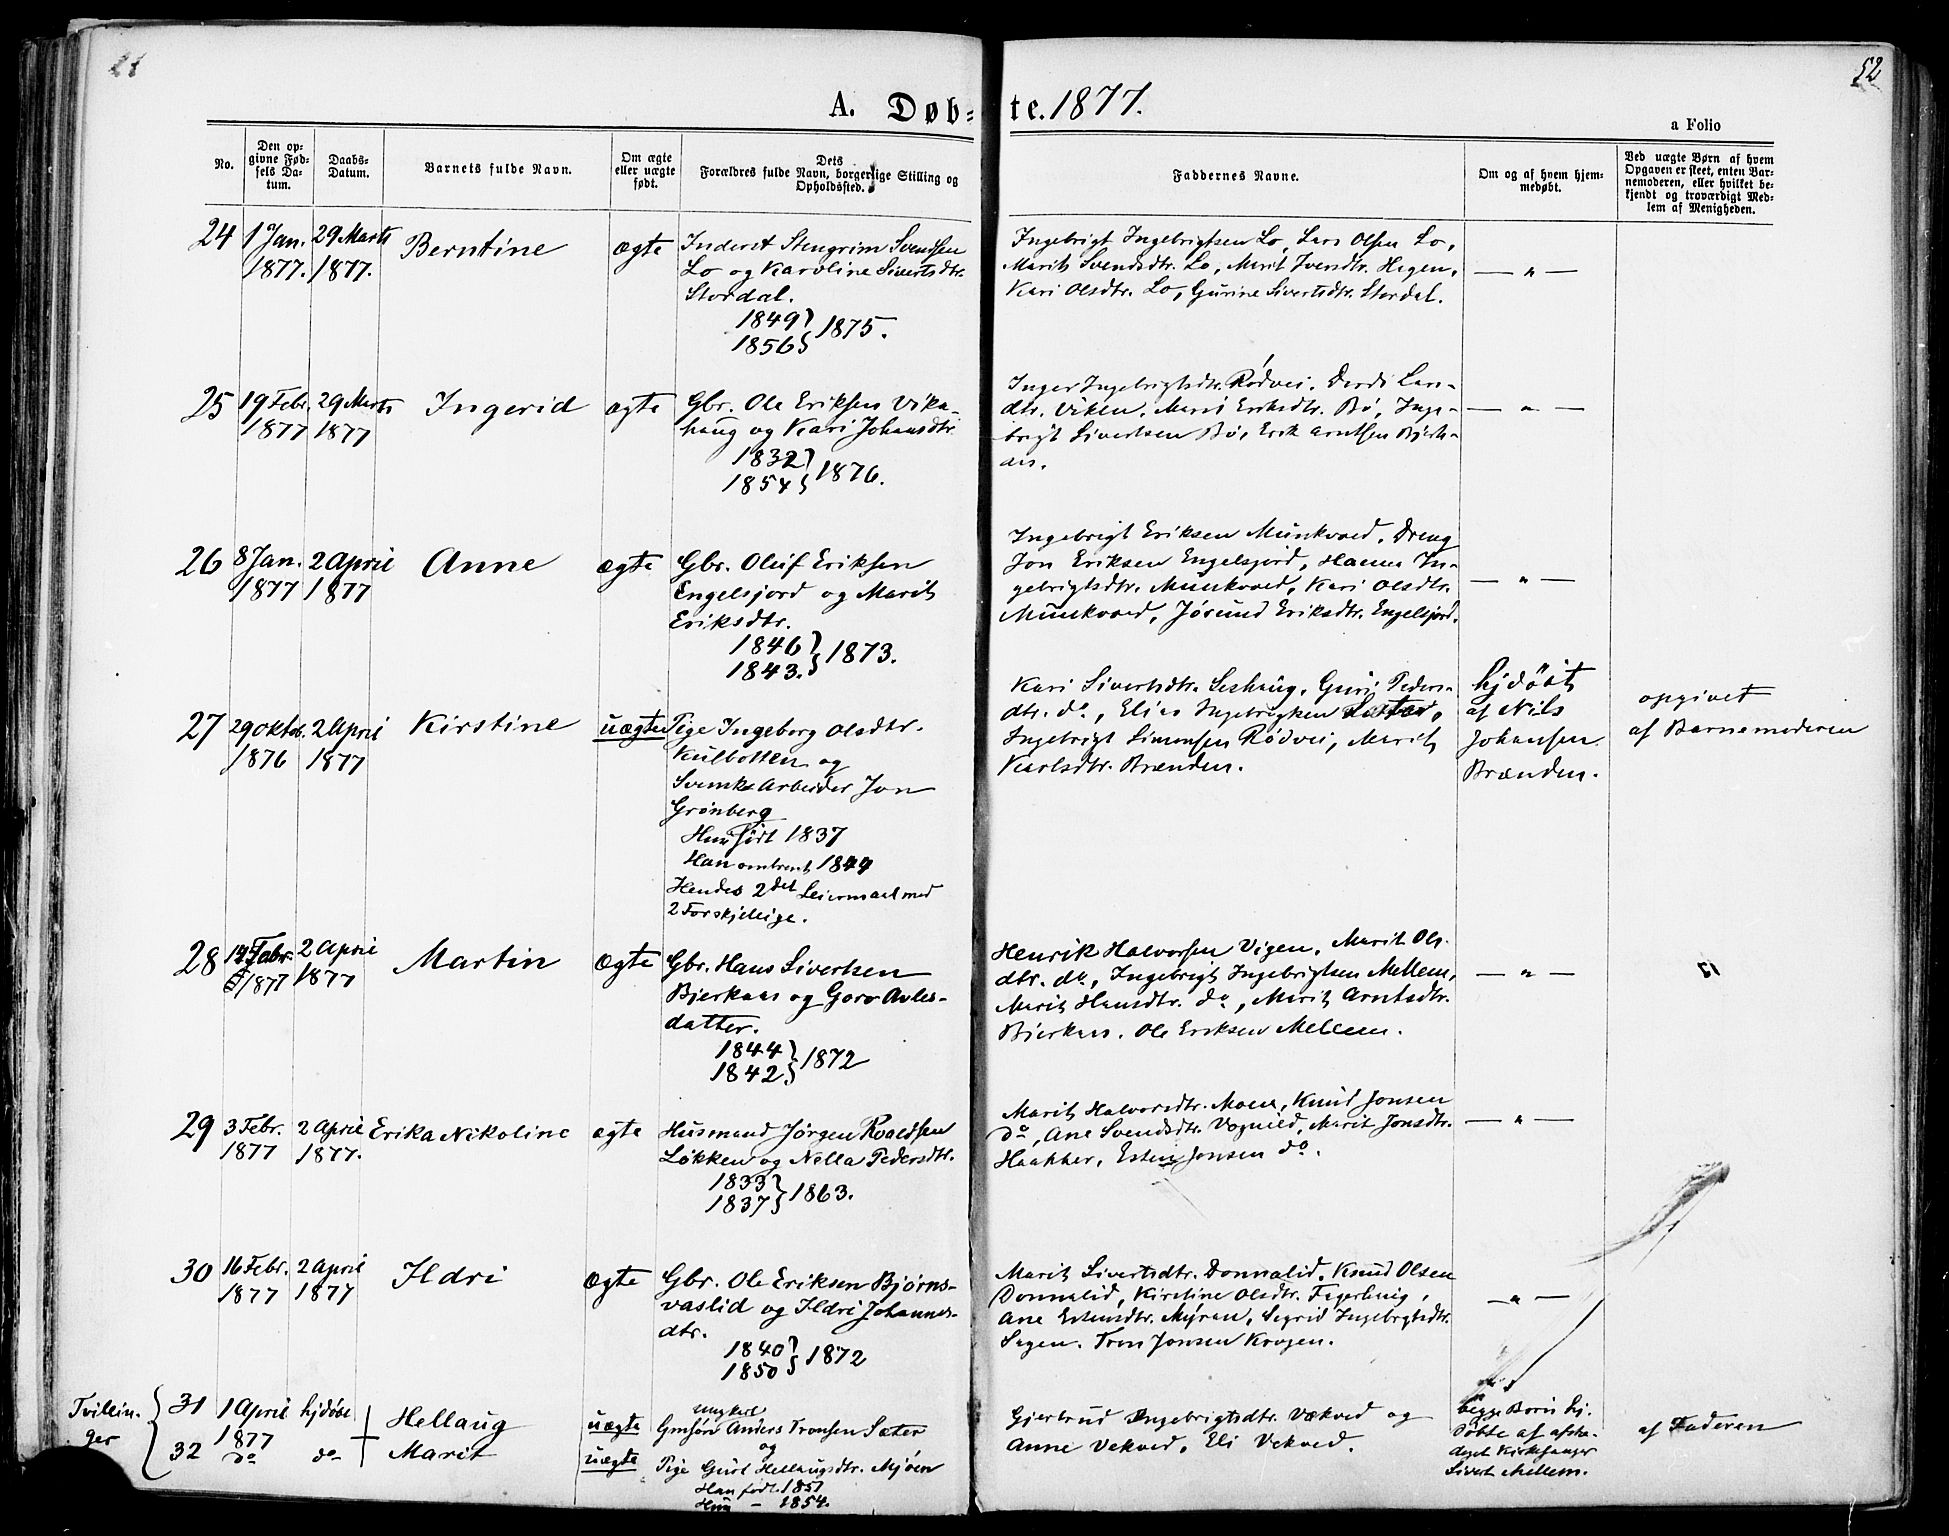 52
A. Døb= te. 1877.
a Folio
No.
Den op-
givne Fød-
sels Da-
tum.
Daabs-
Datum.
Barnets fulde Navn.
Om ægte
eller uægte
født.
Dets
Forældres fulde Navn, borgerlige Stilling og
Opholdssted.
Faddernes Navne.
Om og af hvem hjem-
medøbt.
Ved uægte Børn af hvem
Opgaven er skeet, enten Bar-
nemoderen, eller hvilket be-
kjendt og troværdigt Med-
lem af Menigheden.
24 1 Jan. 29 Marts Berntine ægte
1877. 1877.
Inderst Stengrim Svendsen
Lo og Karoline Sivertsdtr.
Stordal.
1849 } 1875.
1856
Ingebrigt Ingebrigtsen Lo, Lars Olsen Lo,
Marit Svendsdtr. Lo, Marit Iversdtr. Hegen,
Kari Olsdtr. Lo, Gurine Sivertsdtr. Stordal.
— „ —
25 19 Febr. 29 Marts Ingerid ægte
1877 1877
Gbr. Ole Eriksen Vika-
haug og Kari Johansdtr.
1832 } 1876.
1854
Inger Ingebrigtsdtr. Rødvei. Dordi Lars-
dtr. Viken. Marit Eriksdtr. Bø, Inge-
brigt Sivertsen Bø, Erik Arntsen Bjerk-
aas.
— „ —
26 8 Jan. 2 April Anne ægte
1877 1877
Gbr. Oluf Eriksen
Engelsjord og Marit
Eriksdtr.
1846 } 1873.
1843.
Ingebrigt Eriksen Munkvoed. Dreng
Jon Eriksen Engelsjord, Hanna In-
gebrigtsdtr. Munkvoed, Kari Olsdtr.
Munkvoed, Jørund Eriksdtr. Engelsjord.
— „ —
27 29 Oktbr. 2 April Kirstine uægte
1876 1877
Pige Ingeborg Olsdtr.
Kulbotten og
Svensk Arbeider Jon
Grønberg
Hun født 1837
Han omtrent 1849
Hendes 2det Leiermaal med
2 Forskjellige.
Kari Sivertsdtr. Seshaug, Guri Peders-
dtr. do, Elias Ingebrigtsen Sæter,
Ingebrigt Simonsen Rødvei, Marit
Karlsdtr. Brænden.
hjdøbt
af Nils
Johansen
Brænden.
opgivet
af Barnemoderen
28 Febr. 2 April Martin ægte
1877 1877
Gbr. Hans Sivertsen
Bjerkaas og Goro Avles-
datter.
1844 } 1872
1842
Henrik Halvorsen Vigen. Marit Ols-
dtr. do, Ingebrigt Ingebrigtsen Mellem,
Marit Hansdtr. do, Marit Arntsdtr.
Bjerkaas. Ole Eriksen Mellem.
— „ —
29 3 Febr. 2 April Erika Nikoline ægte
1877 1877.
Husmand Jørgen Roaldsen
Løkken og Nella Pedersdtr.
1833 } 1863.
1837
Marit Halvorsdtr. Moen, Knud Jonsen
do, Ane Svendsdtr. Vognild, Marit Jonsdtr.
Haakker, Esten Jonsen do.
— „ —
30 16 Febr. 2 April Ildri ægte
1877 1877
Gbr. Ole Eriksen Bjørns-
vaslid og Ildri Johannes-
dtr.
1840 } 1872
1850
Marit Sivertsdtr. Donnalid. Knud Olsen
Donnalid, Kirstine Olsdtr. Fagerhaug,
Ane Estensdtr. Myran, Sigrid Ingebrigtsdtr.
Sagen. Tron Jonsen Krogen.
— „ —
Tvillin-
ger
31 1 April hjdøbt Hellaug uægte
1877
32 do do Marit uægte
Ungkarl
Gmsøn Anders Tronsen Sæter
og
Pige Guri Hellaugsdtr. Mjøen
Han født 1851
Hun — 1854.
Gjertrud Ingebrigtsdtr. Vekved og
Anne Vekved. Eli Vekved.
begge Børn hj.
døbte af afska-
diget Kirksanger
Sivert Mellem.
af Faderen